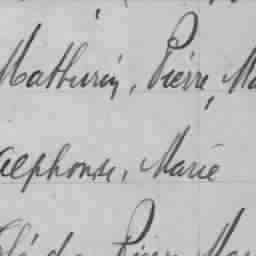 Mathurin, Pierre, Ma
Alphonse, Marie
Pierre Mar